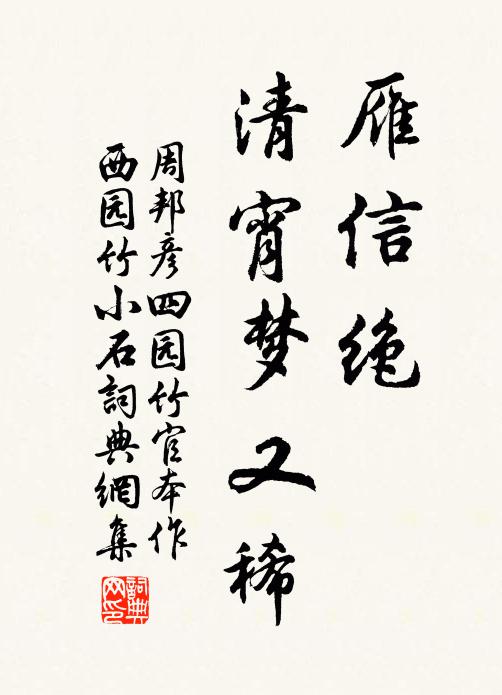 雁信绝
清宵梦又稀
周邦彦四园竹官本作
西园竹小石詞典網集
詞典网印